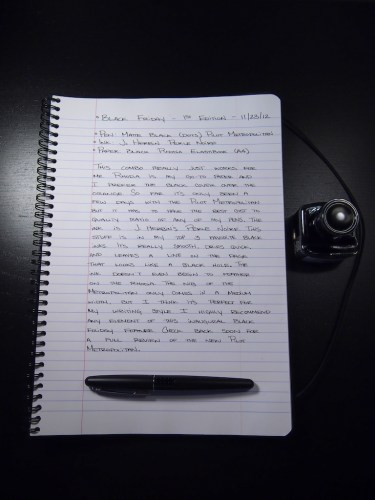 • Black Friday - 1st Edition - 11/23/12
• Pen: Matte Black (Dots) Pilot Metropolitan
• Ink: J. Herbin Perle Noire
• Paper: Black Rhodia
This combo really just works for
me. Rhodia is my go-to paper and
I prefer the black cover over the
orange. So far it's only been a
few days with the Pilot Metropolitan
but it has to have the best cost to
quality ratio of any of my pens. The
ink is J. Herbin's Perle Noire. This
stuff is in my top 3 favorite black
inks. It's really smooth, dries quick
and leaves a line on the page
that looks like a black hole. The
ink doesn't even begin to feather
on the Rhodia. The nib of the
Metropolitan only comes in a medium
width, but I think it's perfect for
my writing style. I highly recommend
any element of this inaugural Black
Friday feature. Check back soon for
a full review of the new Pilot
Metropolitan.